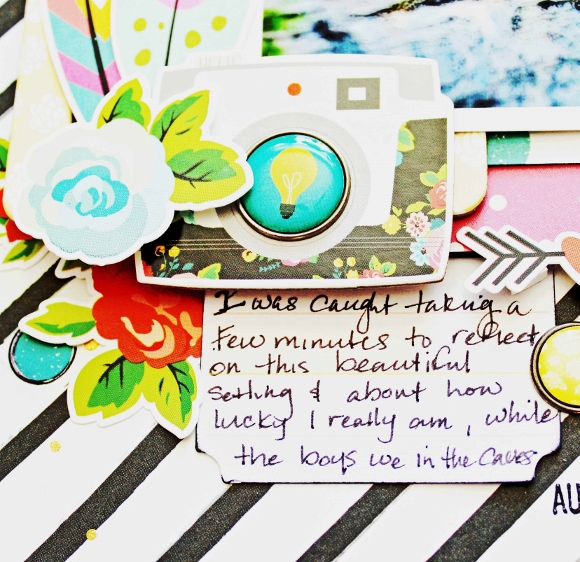 I was caught taking a
few minutes to reflect
on this beautiful
setting & about how
lucky I really am, while
the boys we in the Caves
AU